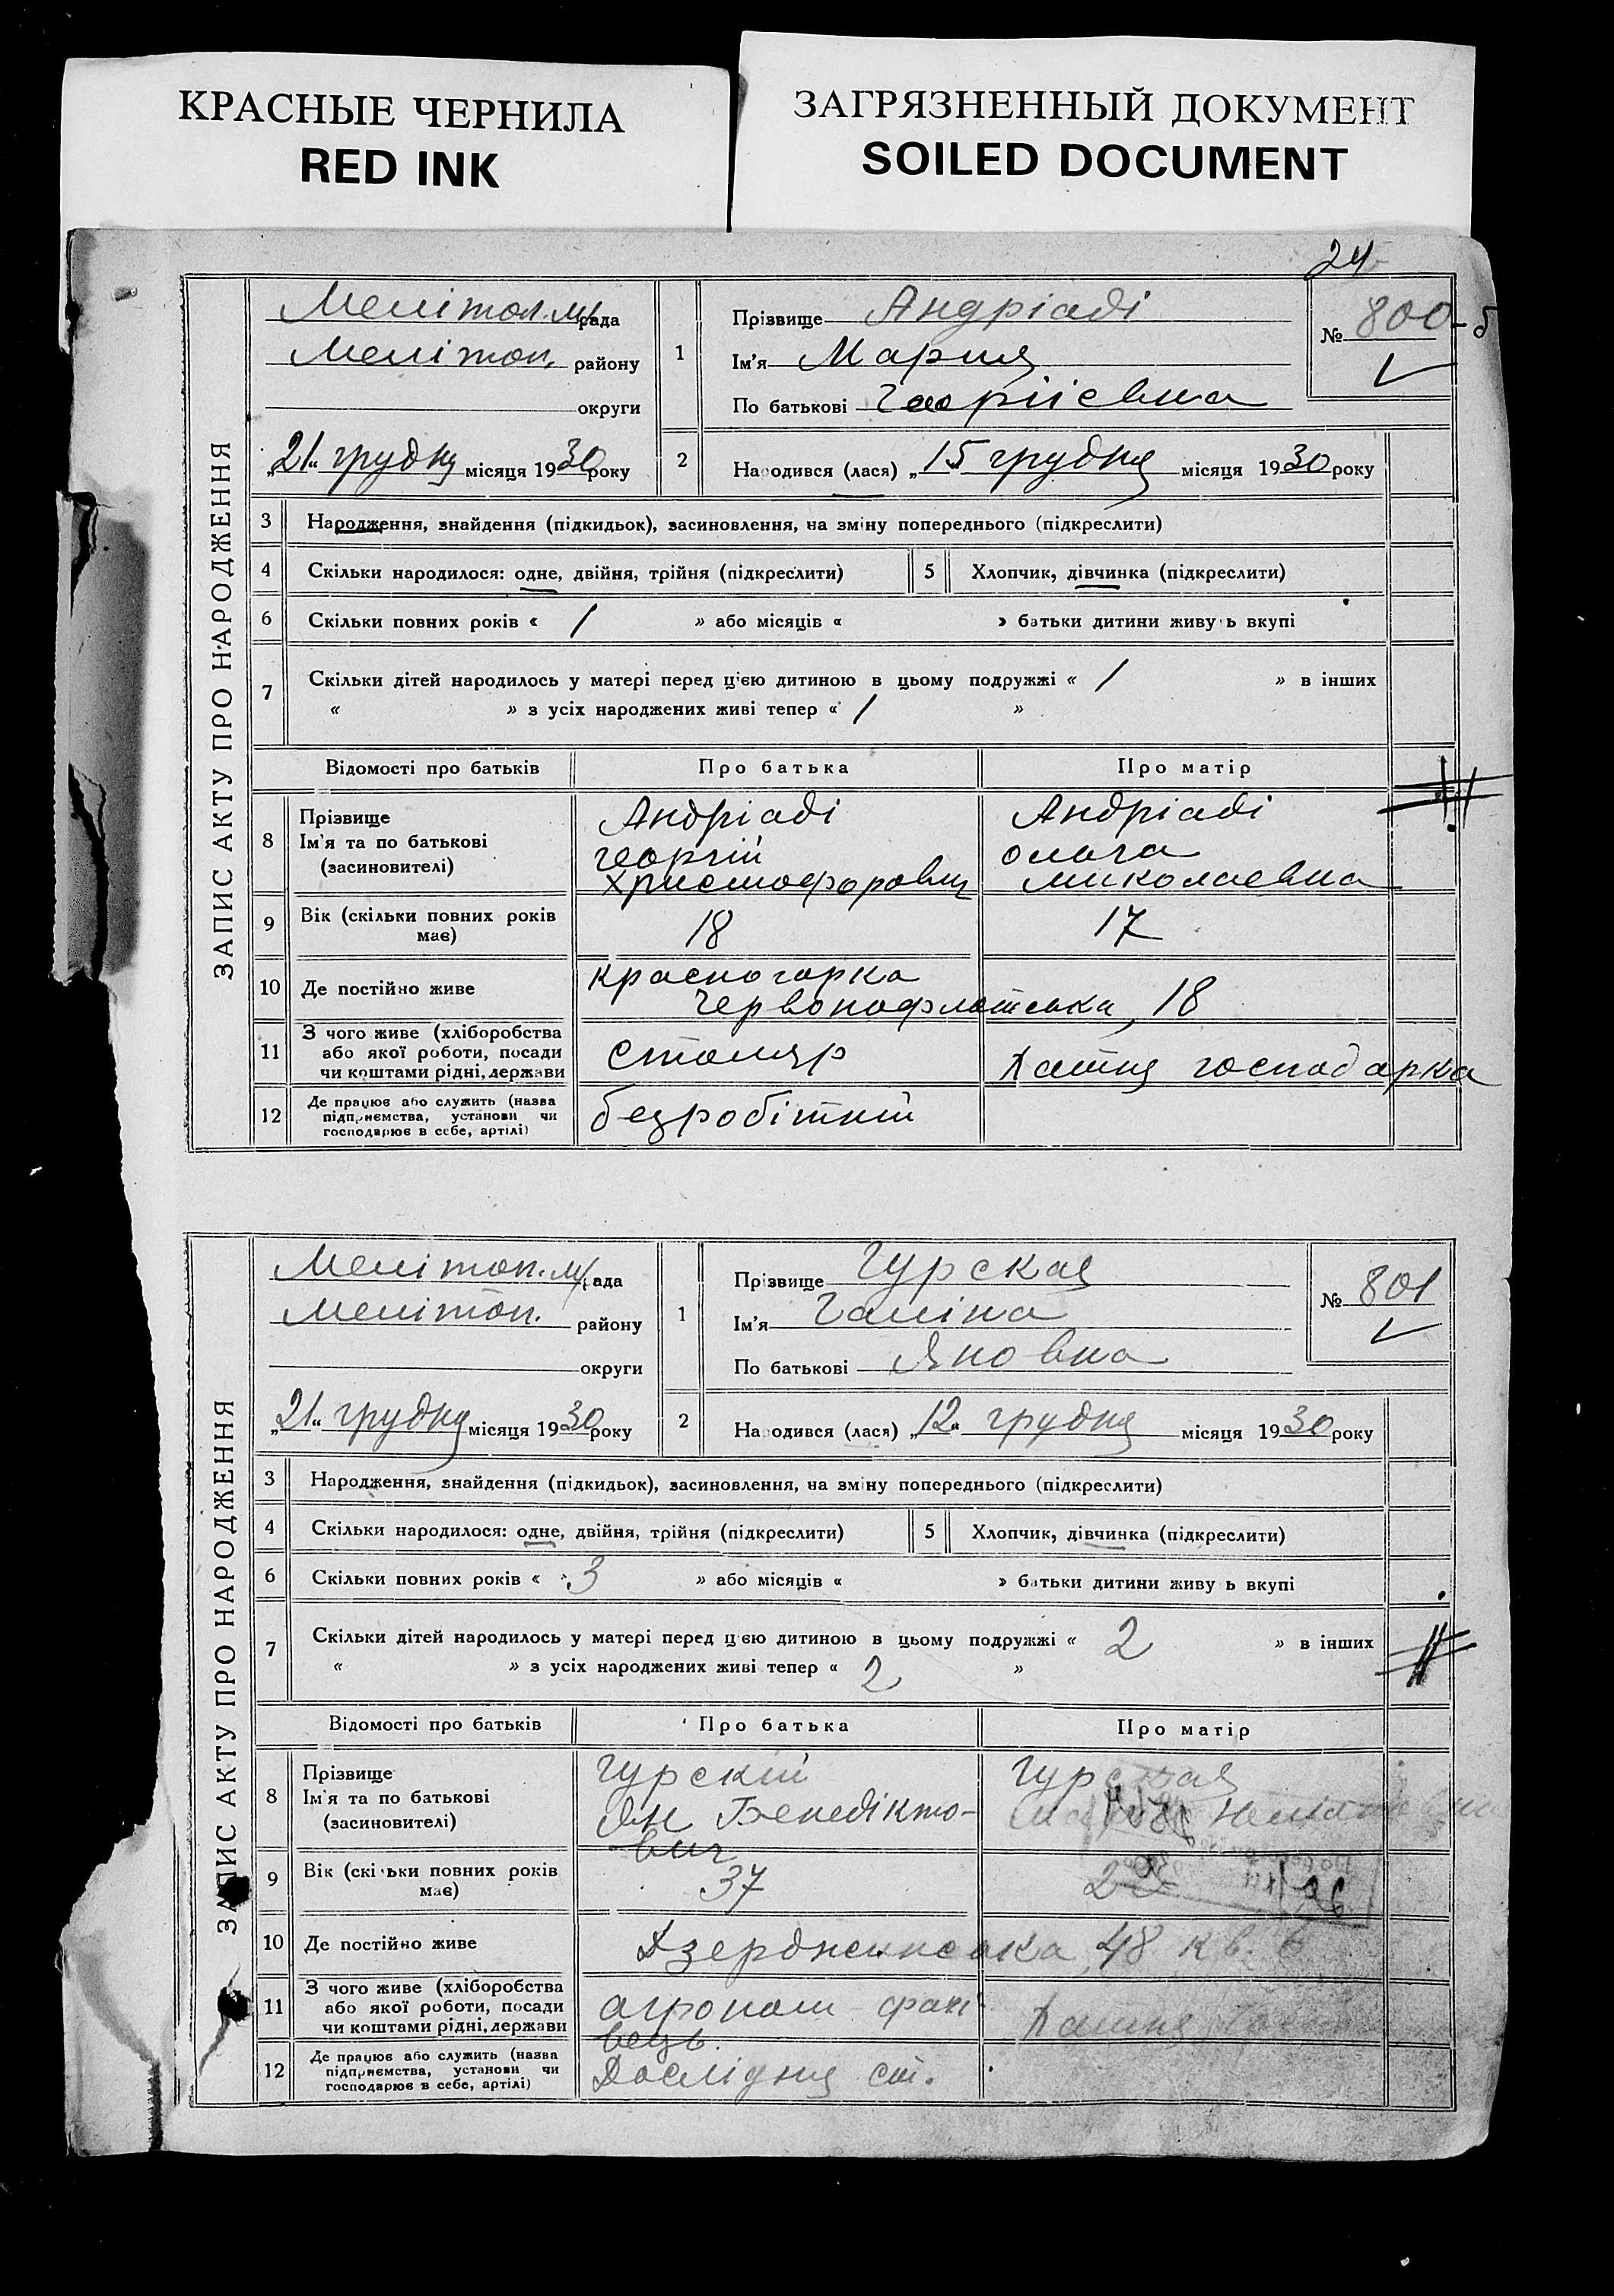 КРАСНЫЕ ЧЕРНИЛА
RED INK
ЗАГРЯЗНЕННЫЙ ДОКУМЕНТ
SOILED DOCUMENT
24
ЗАПИС АКТУ ПРО НАРОДЖЕННЯ
Мелітоп. м/рада
Мелітоп. району
округи
„21“ грудня місяця 1930 року
1
Прізвище Андріаді
Ім'я Мария
По батькові Георгіевна
№ 800-б
2
Народився (лася) „15 грудня місяця 1930 року
3 Народження, знайдення (підкидьок), засиновлення, на зміну попереднього (підкреслити)
4 Скільки народилося: одне, двійня, трійня (підкреслити) 5 Хлопчик, дівчинка (підкреслити)
6 Скільки повних років « 1 » або місяців « » батьки дитини живуть вкупі
7 Скільки дітей народилось у матері перед цією дитиною в цьому подружжі « 1 » в інших
« » з усіх народжених живі тепер « 1 »
Відомості про батьків Про батька Про матір
8 Прізвище Андріаді Андріаді
Ім'я та по батькові Георгій Ольга
(засиновителі) Христофорович Миколаевна
9 Вік (скільки повних років має) 18 17
10 Де постійно живе Красногорка
Червонофлотська, 18
11 З чого живе (хліборобства
або якої роботи, посади столяр Хатня господарка
чи коштами рідні, держави
12 Де працює або служить (назва
підприємства, установи чи безробітний
господарює в себе, артілі)
ЗАПИС АКТУ ПРО НАРОДЖЕННЯ
Мелітоп. м/рада
Мелітоп. району
округи
„21“ грудня місяця 1930 року
1
Прізвище Гурская
Ім'я Галіна
По батькові Яновна
№ 801
2
Народився (лася) „12“ грудня місяця 1930 року
3 Народження, знайдення (підкидьок), засиновлення, на зміну попереднього (підкреслити)
4 Скільки народилося: одне, двійня, трійня (підкреслити) 5 Хлопчик, дівчинка (підкреслити)
6 Скільки повних років « 3 » або місяців « » батьки дитини живуть вкупі
7 Скільки дітей народилось у матері перед цією дитиною в цьому подружжі « 2 » в інших
« » з усіх народжених живі тепер « 2 »
Відомості про батьків Про батька Про матір
8 Прізвище Гурскій Гурская
Ім'я та по батькові Ян Бенедікто-
(засиновителі) вич
9 Вік (скільки повних років має) 37
10 Де постійно живе Дзердженська, 48 кв. 6
11 З чого живе (хліборобства
або якої роботи, посади агроном - фахі- Хатня
чи коштами рідні, держави вець.
12 Де працює або служить (назва
підприємства, установи чи Дослідня ст.
господарює в себе, артілі)